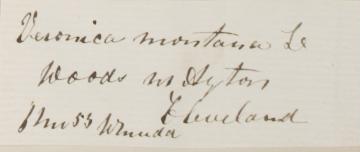 Veronica montana L
Woods nr Ayton
Cleveland